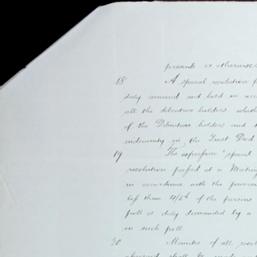 presents or otherwise
18 A special resolution
duly convened and held in
all the debenture holders which
of the Debenture holders and
indemnity in the Trust Deed
19 The expression "special
resolution passed at a Meeting
in accordance with the provisions
less than 4/5th of the persons
poll is duly demanded by a
in such poll
20 Minutes of all
aforesaid shall be made